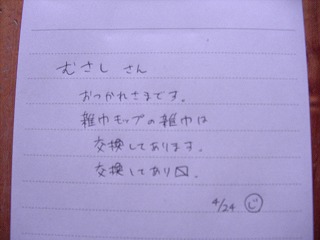 むさし さん
おつかれさまです。
雑巾モップの雑巾は
交換してあります。
交換してあり〼。
4/24 じ